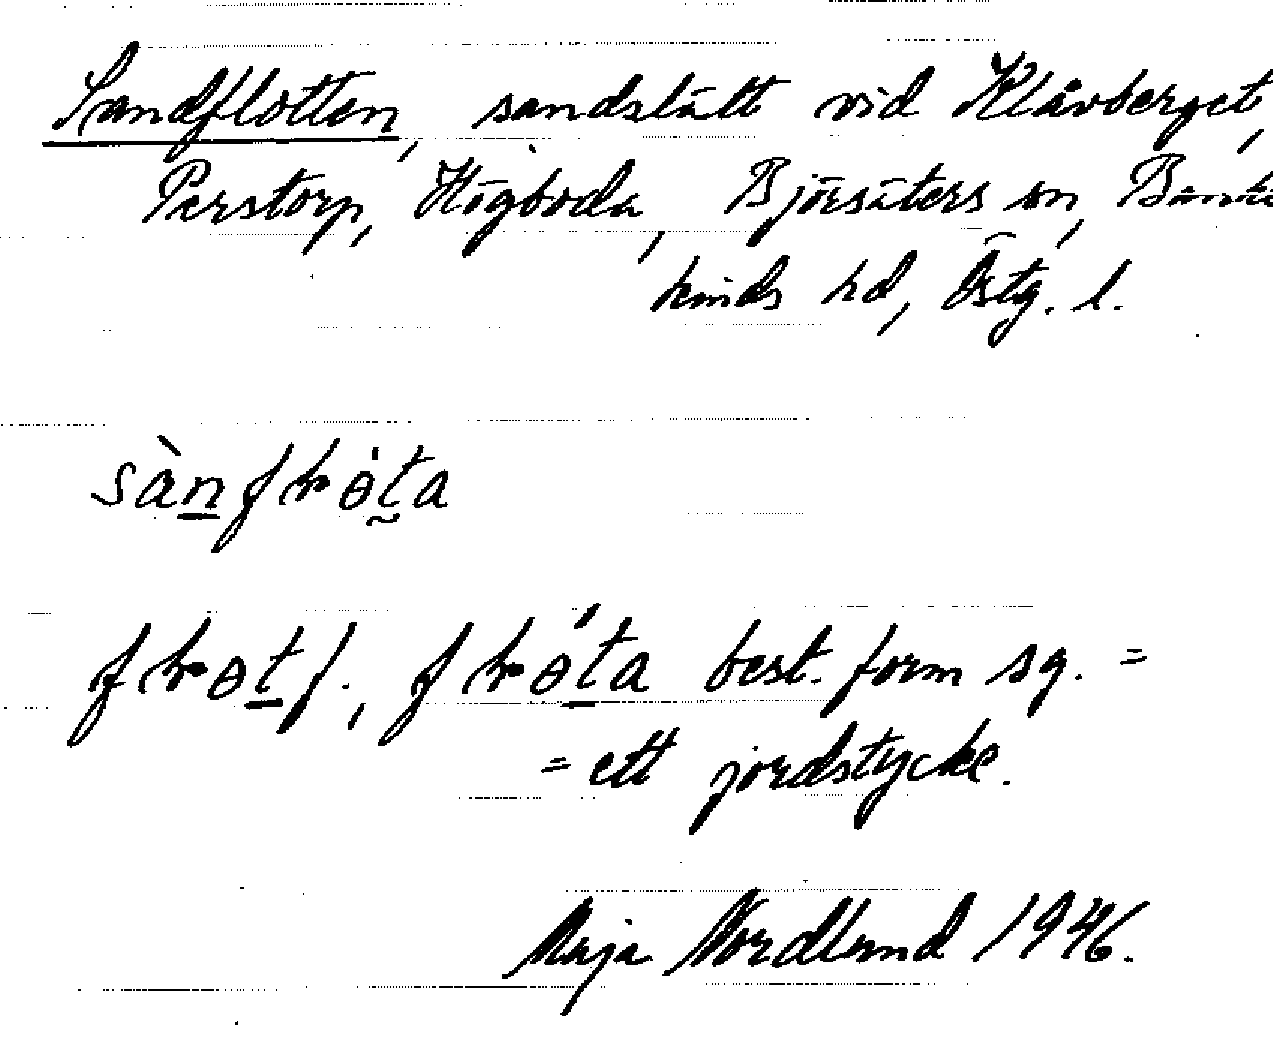 Sandflotten, sandslätt vid Klåvberget,
Perstorp, Högboda, Björsäters sn, Banke
kinds hd, Östg. l.
sànfɫɵ̀ta
fɫɵt f., fɫɵ́ta best. form sg. =
= ett jordstycke.
Maja Nordlund 1946.